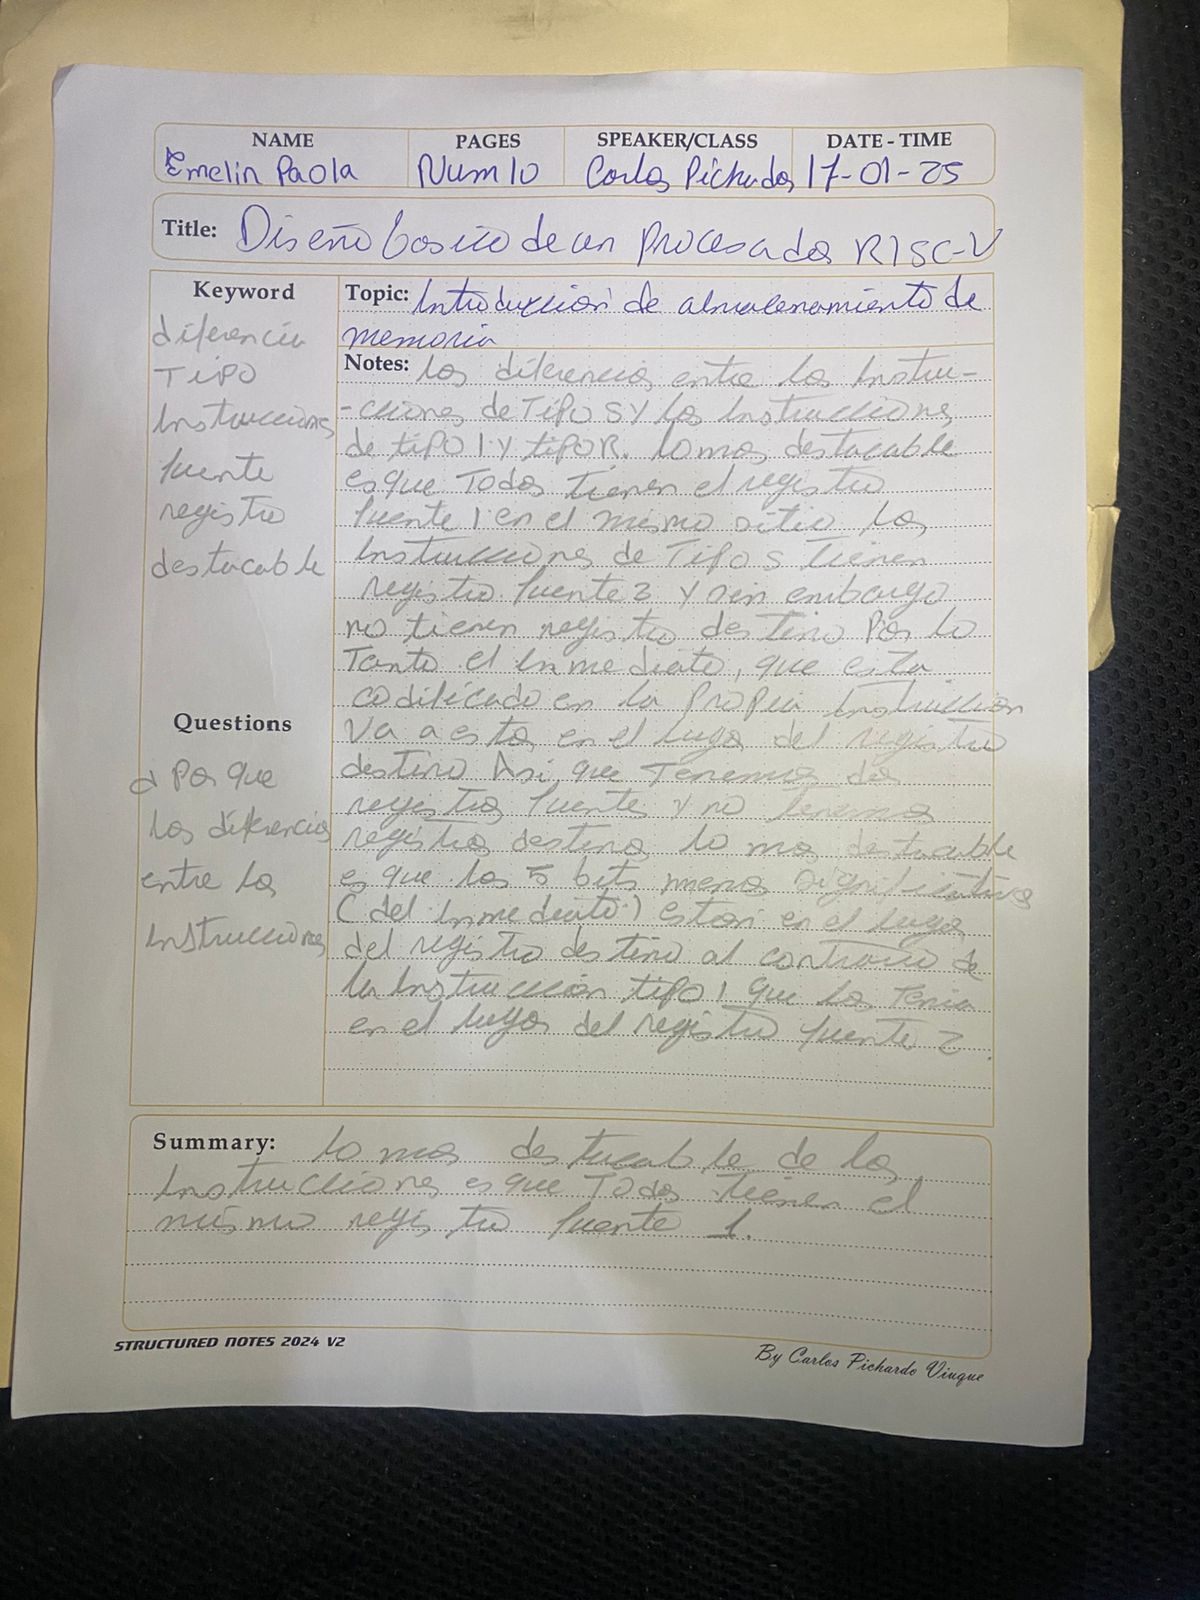 NAME PAGES SPEAKER/CLASS DATE - TIME
Emelin Paola Num 10 Carlos Pichardo 17-01-25
Title: Diseño basico de un Procesador RISC-V
Keyword
diferencia
Tipo
Instrucciones
fuente
registro
destacable
Questions
¿Por que
las diferencias
entre las
Instrucciones
Topic: Introduccion de almacenamiento de
memoria
Notes: Las diferencias entre las Instru-
-cciones de Tipo S y las Instrucciones
de tipo I y tipo R. lo mas destacable
es que Todas tienen el registro
fuente 1 en el mismo sitio las
Instrucciones de Tipo S Tienen
registro fuente 2 y sin embargo
no tienen registro destino Por lo
Tanto el Inmediato, que esta
codificado en la Propia Instruccion
va a estar en el lugar del registro
destino Asi que Tenemos dos
registros fuente y no tenemos
registros destino lo mas destacable
es que los 5 bits menos significativos
(del inmediato) estan en el lugar
del registro destino al contrario de
la Instruccion tipo I que los Tenia
en el lugar del registro fuente 2.
Summary: Lo mas destacable de las
Instrucciones es que Todas Tienen el
mismo registro fuente 1.
STRUCTURED NOTES 2024 V2
By Carlos Pichardo Viuque